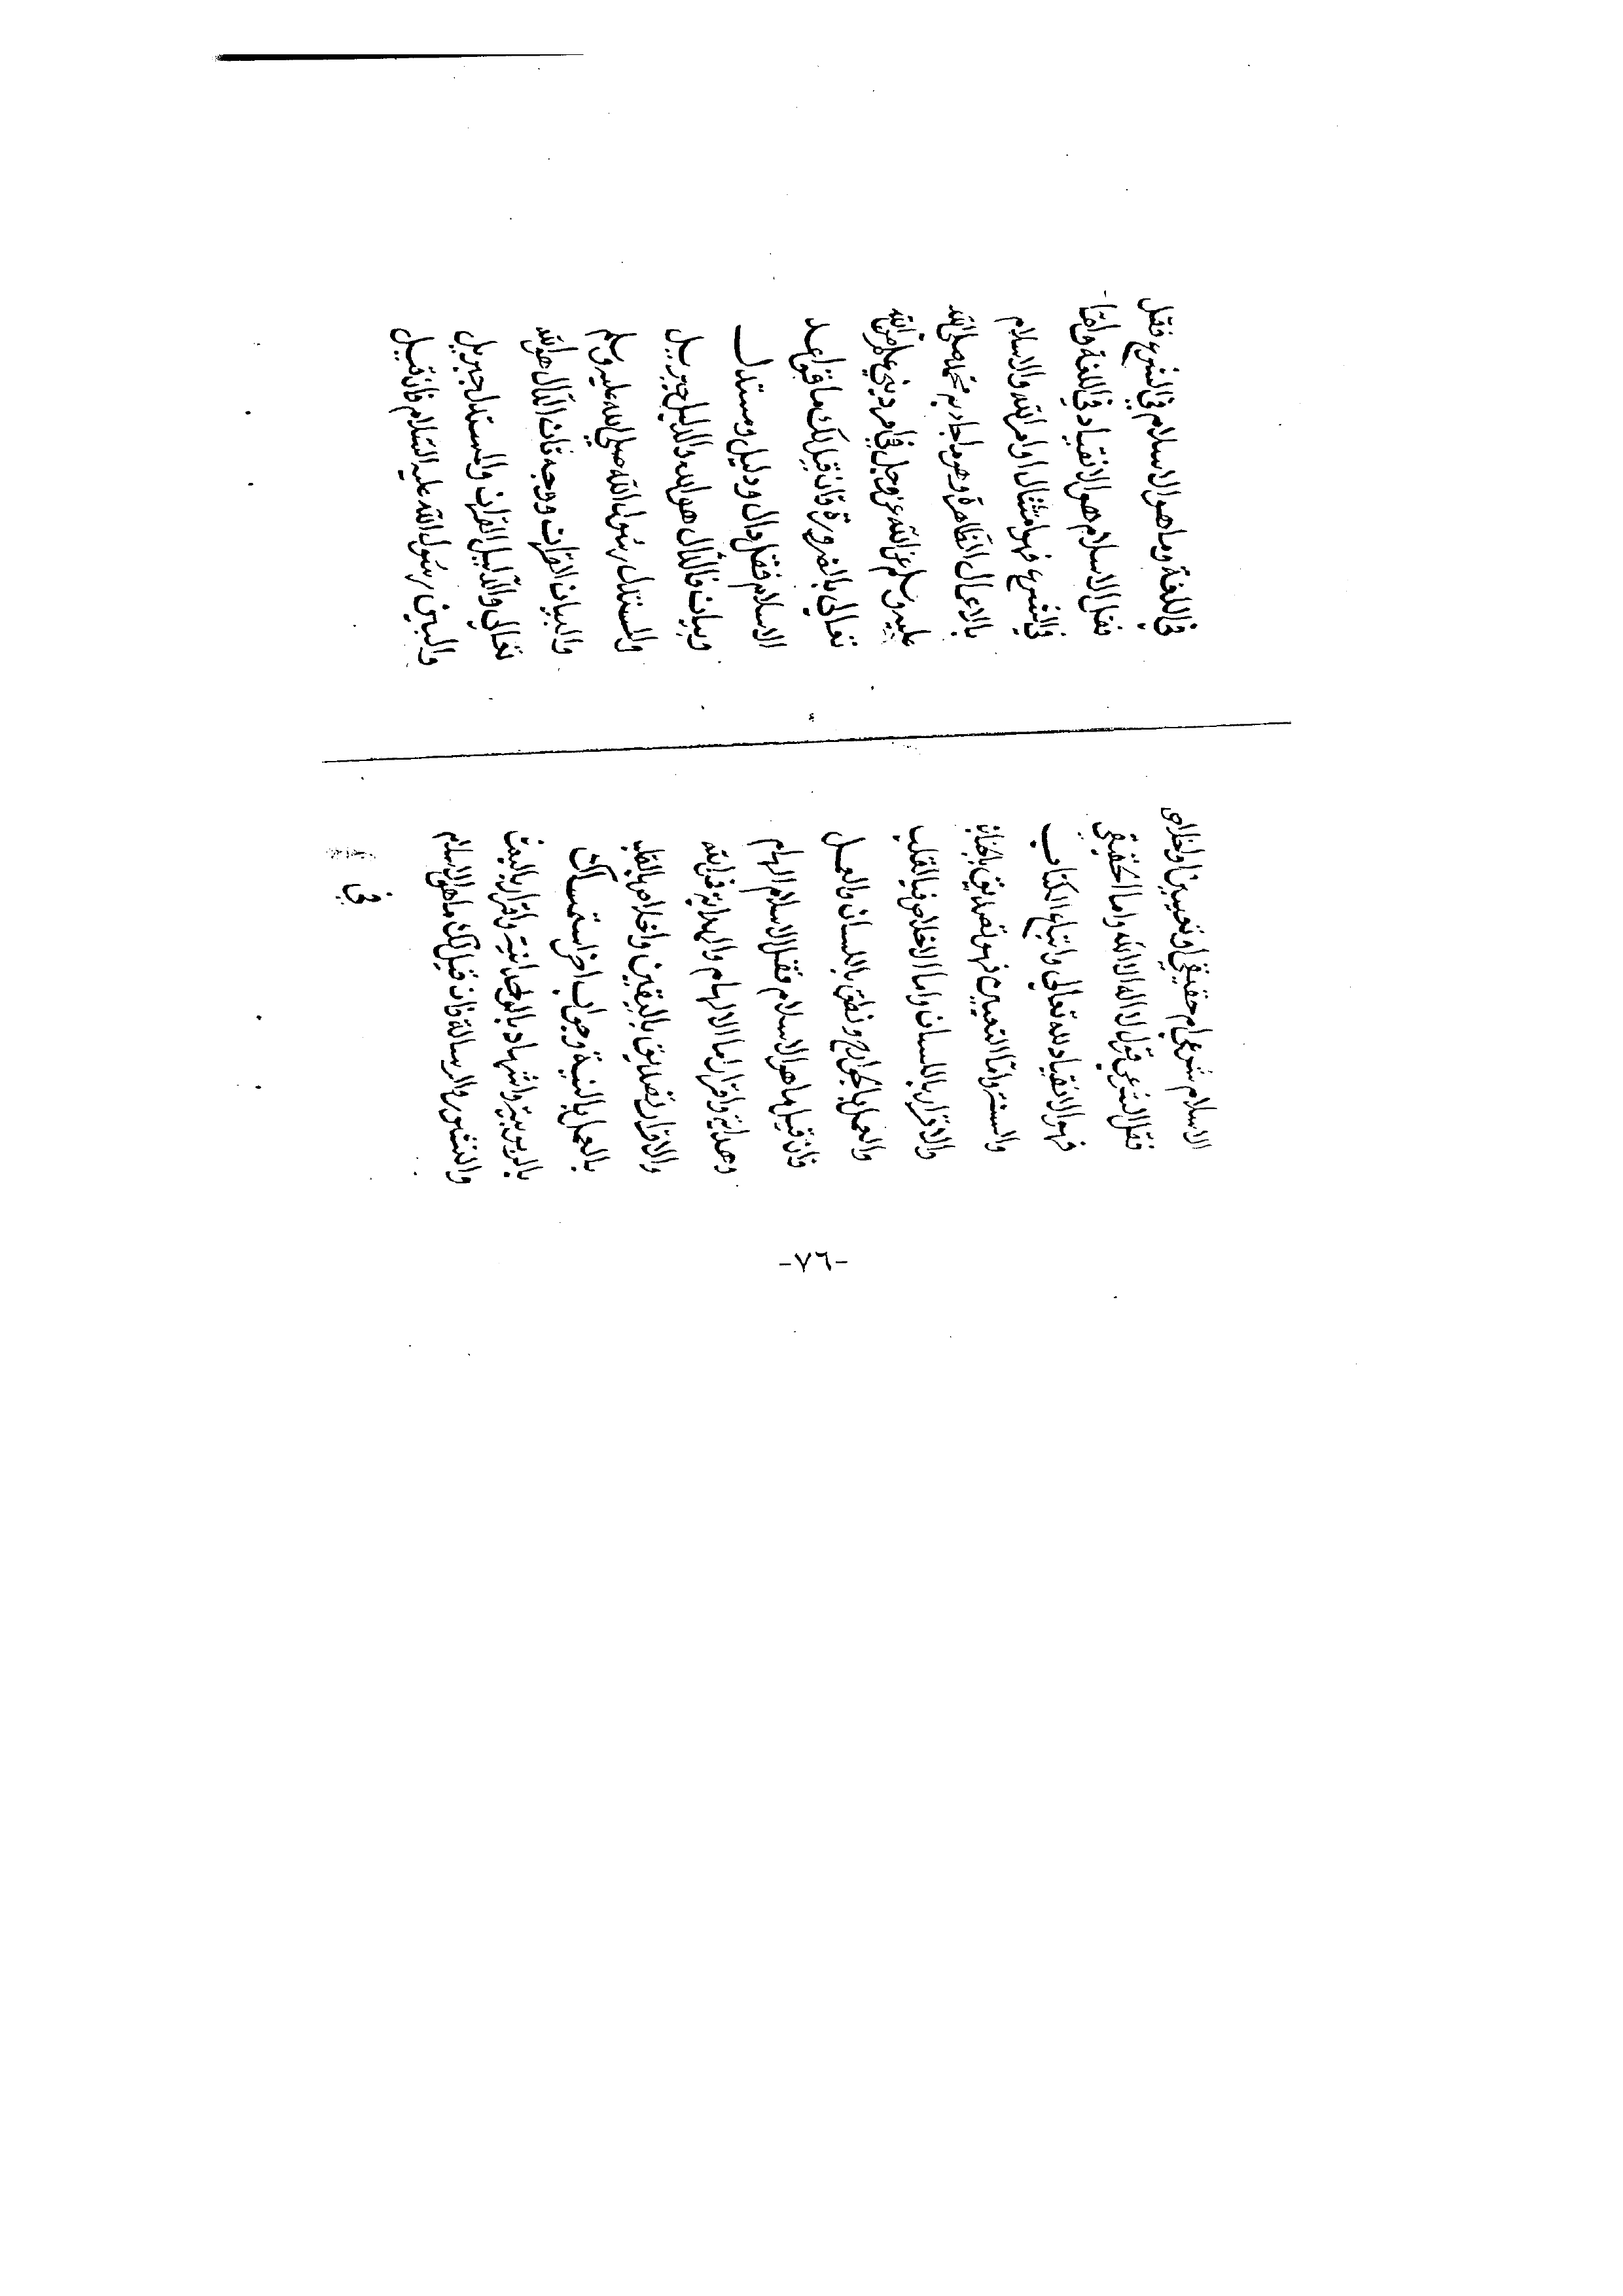 الاسلام شرعي ام حقيقي او تعيين او اخلاص
فقل الشرعي قول لا اله الا الله واما الحقيقي
فهو الانقياد لله تعالى واتباع الكتاب
والسنة واما التعيين فهو تصديق بالجنان
والاقرار باللسان واما الاخلاص فبالقلب
والعمل بالجوارح ونطق باللسان والعمل
فان قيل ما هو الاسلام فقل الاسلام الهام
وهداية واقرار اما الالهام والهداية فمن الله
والاقرار تصديق باليقين واخلاص بالقلب
بالعمل بالنية وجواب اخر استمساك
بالربوبية واشهاد بالوحدانية واقرار بالبعث
والنشور والرسالة فان قيل لك ما هو الاسلام
في
في اللغة وما هو الاسلام في الشرع فقل
فقل الاسلام هو الانقياد في اللغة واما
في الشرع فهو امتثال اوامر الله والاسلام
بالاعمال الظاهرة وهو ما جاء به محمد صلى الله
عليه وسلم عن الله عز وجل في امر ديني علم من الله
تعالى بالضرورة فان قيل لك ما قواعد
الاسلام فقل دال ودليل ومستدل
وبيان فالدال هو الله والدليل جبريل
والمستدل رسول الله صلى الله عليه وسلم
والبيان القران ووجه ثان الدال هو الله
تعالى والدليل القران والمستدل جبريل
والمبين رسول الله عليه السلام فان قيل
-٧٦-